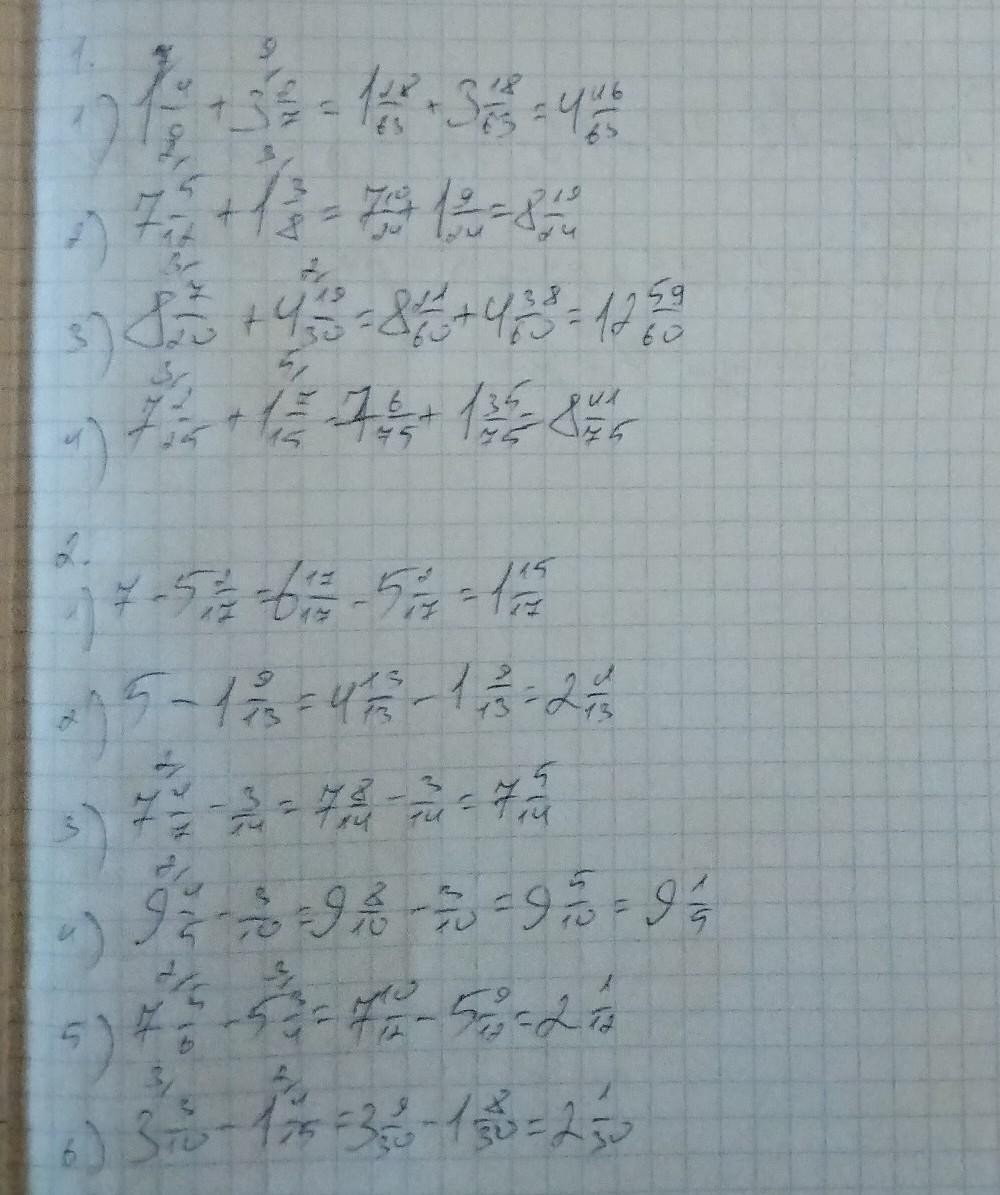 1.
1) 1 4/9 + 3 2/7 = 1 28/63 + 3 18/63 = 4 46/63
2) 7 5/12 + 1 3/8 = 7 10/24 + 1 9/24 = 8 19/24
3) 8 7/20 + 4 19/30 = 8 21/60 + 4 38/60 = 12 59/60
4) 7 2/25 + 1 7/15 = 7 6/75 + 1 35/75 = 8 41/75
2.
1) 7 - 5 2/17 = 6 17/17 - 5 2/17 = 1 15/17
2) 5 - 1 9/13 = 4 13/13 - 1 9/13 = 2 4/13
3) 7 4/7 - 3/14 = 7 8/14 - 3/14 = 7 5/14
4) 9 4/5 - 3/10 = 9 8/10 - 3/10 = 9 5/10 = 9 1/5
5) 7 5/6 - 5 3/4 = 7 10/12 - 5 9/12 = 2 1/12
6) 3 3/10 - 1 4/15 = 3 9/30 - 1 8/30 = 2 1/30